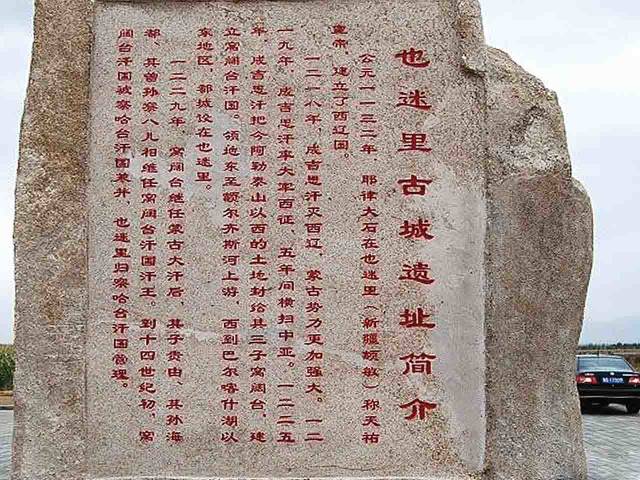 也迷里古城遗址简介
公元一一三二年，耶律大石在也迷里（新疆额敏）称天祐
皇帝，建立了西辽国。
一二一八年，成吉思汗灭西辽，蒙古势力更加强大。一二
一九年，成吉思汗率大军西征，五年间横扫中亚。一二二五
年，成吉思汗把今阿勒泰山以西的土地封给其三子窝阔台，建
立窝阔台汗国。领地东至额尔齐斯河上游，西到巴尔喀什湖以
东地区，都城设在也迷里。
一二二九年，窝阔台继任蒙古大汗后，其子贵由、其孙海
都、其曾孙察八儿相继任窝阔台汗国汗王。到十四世纪初，窝
阔台汗国被察哈台汗国兼并，也迷里归察哈台汗国管理。